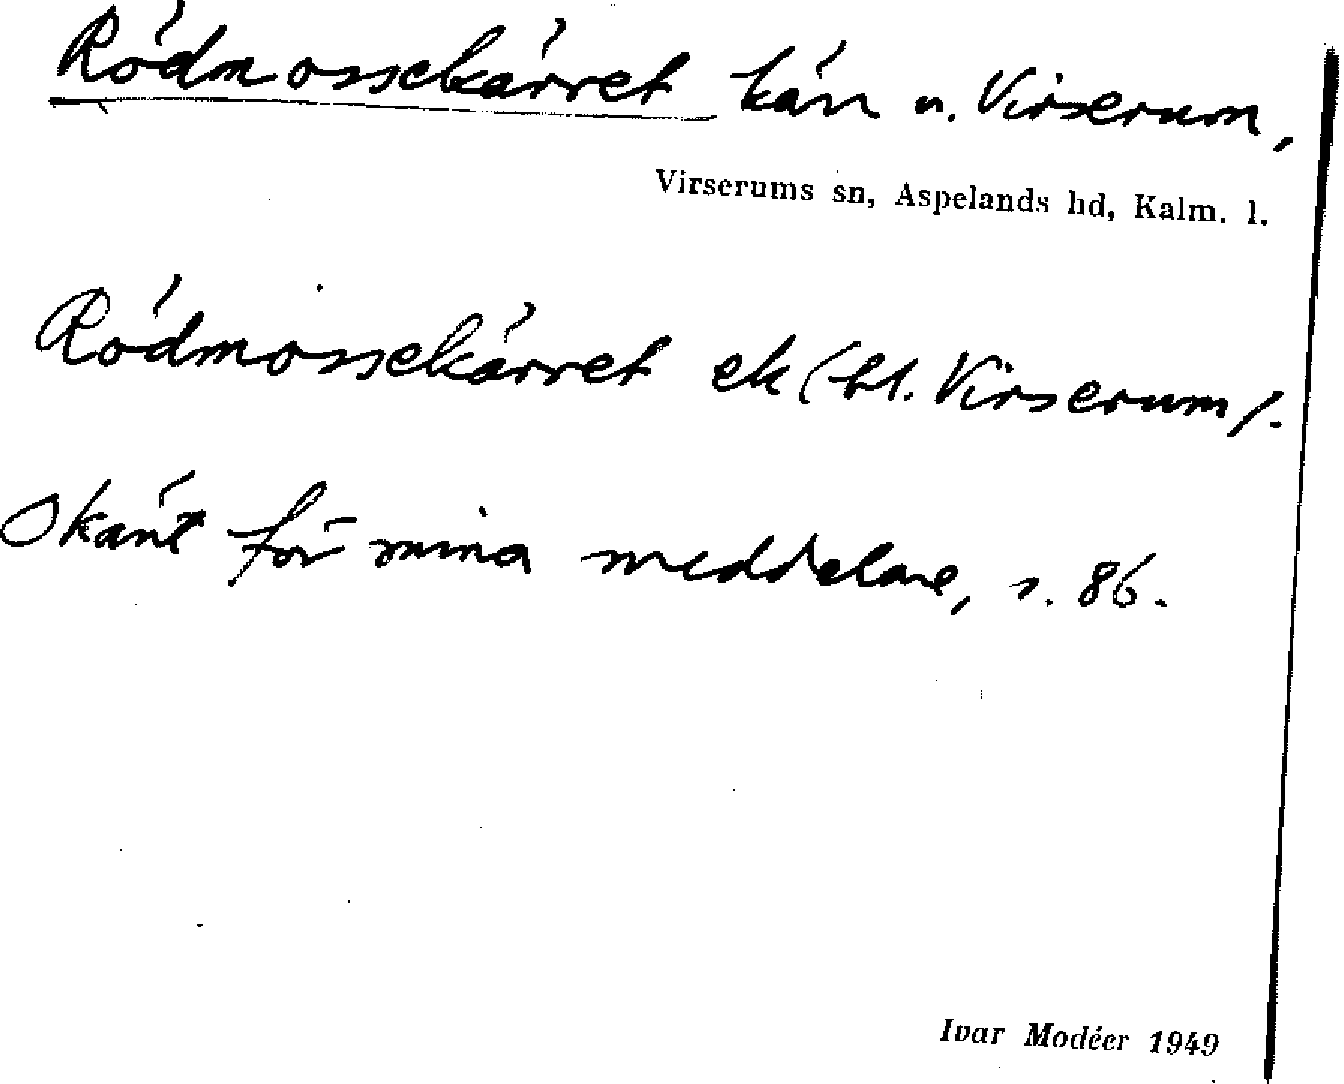 Rödmossekärret kärr u. Virserum,
Virserums sn, Aspelands hd, Kalm. l.
Rödmossekärret ek (bl. Virserum).
Okänt för mina meddelare, s. 86.
Ivar Modéer 1949